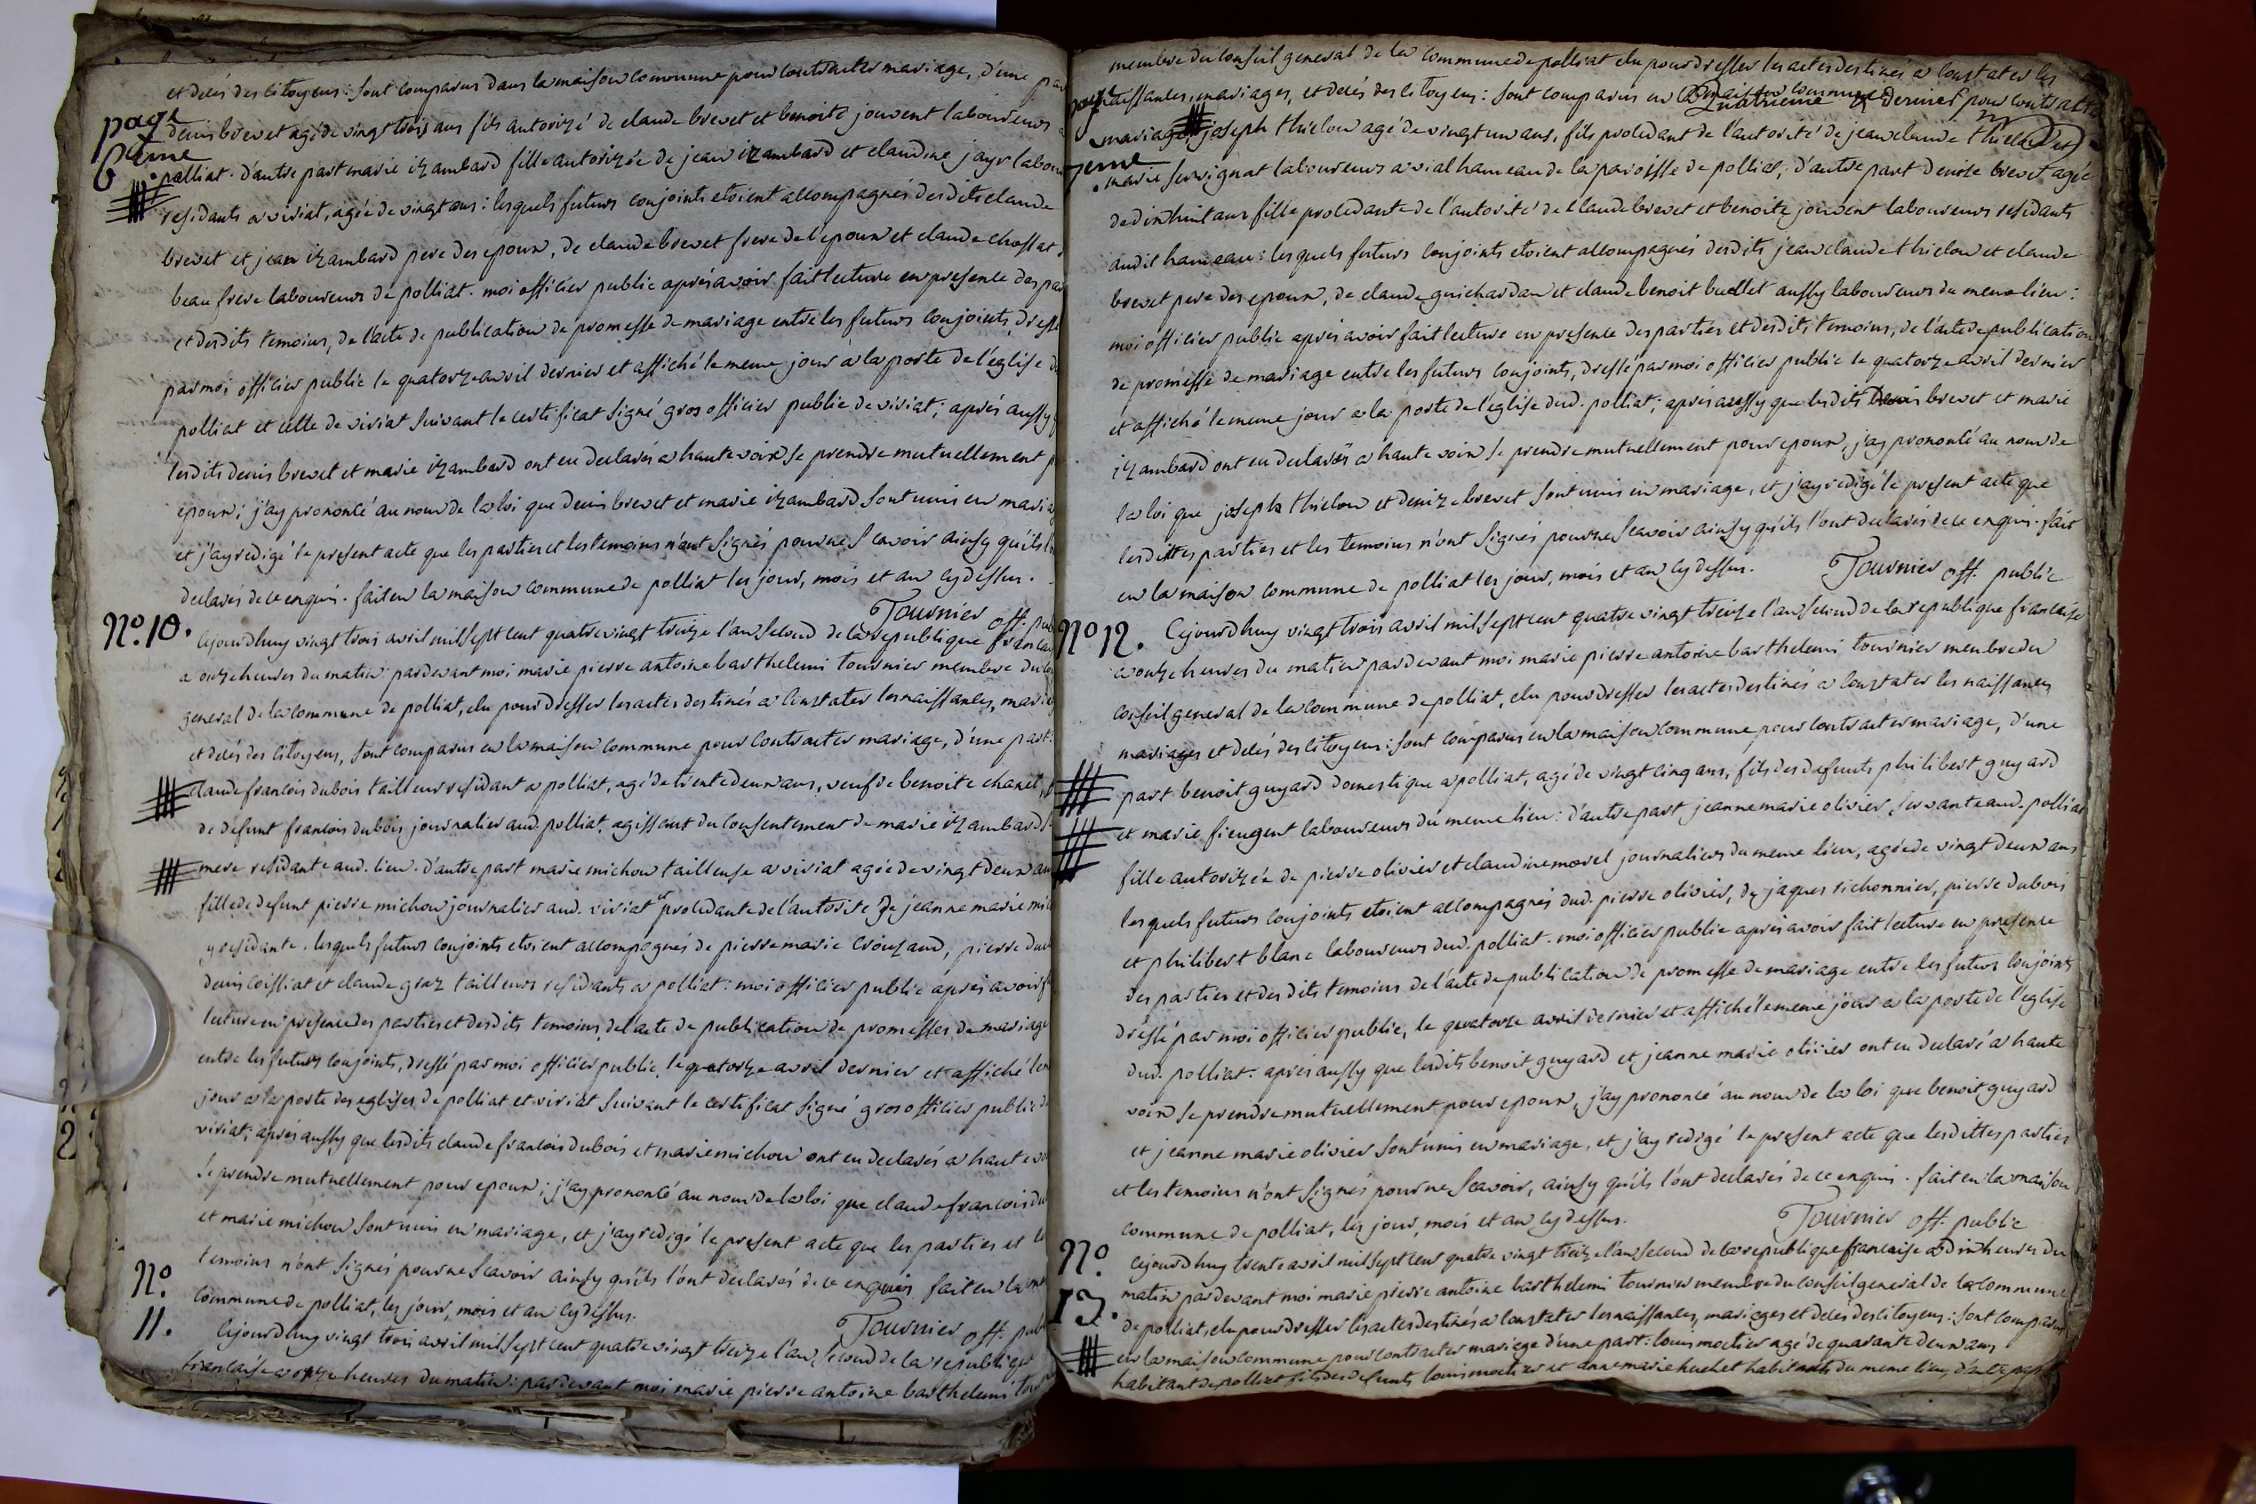 et decés des citoyens : sont comparus dans la maison commune pour contracter mariage, d'une par
page
6eme
denis brevet agé de vingt trois ans fils autorizé de claude brevet et benoite jouvent laboureurs a
polliat. d'autre part marie izambard fille autorizée de jean izambard et claudine jayr labour
residants a viriat, agée de vingt ans : lesquels futurs conjoints etoient accompagnés desdits claude
brevet et jean izambard pere des epoux, de claude brevet frere de l'epoux et claude chossat,
beau frere laboureurs de polliat. moi officier public aprés avoir fait lecture en presence des par
et desdits temoins, de l'acte de publication de promesse de mariage entre les futurs conjoints, dressé
par moi officier public le quatorze avril dernier et affiché le meme jour a la porte de l'église de
polliat et celle de viriat suivant le certificat signé gros officier public de viriat ; aprés aussy q
lesdits denis brevet et marie izambard ont eu declarés a haute voix se prendre mutuellement p
epoux ; j'ay prononcé au nom de la loi que denis brevet et marie izambard sont unis en maria
et j'ay redigé le present acte que les parties et les temoins n'ont signés pour ne scavoir ainsy qu'ils l
declarés de ce enquis. fait en la maison commune de polliat les jour, mois et an cy dessus.
Tournier off. pub
N°. 10.
Cejourdhuy vingt trois avril mil sept cent quatre vingt treize l'an second de la republique francai
a onze heures du matin : pardevant moi marie pierre antoine barthelemi tournier membre du con
general de la commune de polliat, elu pour dresser les actes destinés a constater les naissances, maria
et decés des citoyens, sont comparus en la maison commune pour contracter mariage, d'une part.
claude francois dubois tailleur residant a polliat, agé de trente deux ans, veuf de benoite chanel, f
de defunt francois dubois journalier aud. polliat. agissant du consentement de marie izambard s
mere residante aud. lieu. d'autre part marie michon tailleuse a viriat agée de vingt deux ans
fille de defunt pierre michon journalier aud. viriat et procedante de l'autorité de jeanne marie mic
y residante. lesquels futurs conjoints etoient accompagnés de pierre marie Crouzaud, pierre dub
denis coissiat et claude graz tailleurs residants a polliat : moi officier public aprés avoir f
lecture en presence des parties et desdits temoins, de l'acte de publication de promesses de mariage
entre les futurs conjoints, dressé par moi officier public le quatorze avril dernier et affiché le m
jour a la porte des eglises de polliat et viriat suivant le certificat signé gros officier public de
viriat ; aprés aussy que lesdits claude francois dubois et marie michon ont eu declarés a haute vo
se prendre mutuellement pour epoux ; j'ay prononcé au nom de la loi que claude francois du
et marie michon sont unis en mariage, et j'ay redigé le present acte que les parties et le
temoins n'ont signés pour ne scavoir ainsy qu'ils l'ont declarés de ce enquis fait en la mai
commune de polliat, les jour, mois et an cy dessus.
Tournier off. pub
N°.
11.
Cejourdhuy vingt trois avril mil sept cent quatre vingt treize l'an second de la republique
francaise a onze heures du matin : pardevant moi marie pierre antoine barthelemi tour
membre du conseil general de la commune de polliat elu pour dresser les actes destinés a constater les
page
7eme
naissances, mariages, et decés des citoyens : sont comparus en la maison commune pour contracter
quatrieme & dernier
mariage, joseph thielon agé de vingt un ans, fils procedant de l'autorité de jean claude thielon et
marie servignat laboureurs a vial hameau de la paroisse de polliat, d'autre part denise brevet agée
de dix huit ans fille procedante de l'autorité de claude brevet et benoite jouvent laboureurs residants
audit hameau : lesquels futurs conjoints etoient accompagnés desdits jean claude thielon et claude
brevet pere des epoux, de claude guichardan et claude benoit buellet aussy laboureurs du meme lieu :
moi officier public aprés avoir fait lecture en presence des parties et desdits temoins, de l'acte de publication
de promesse de mariage entre les futurs conjoints, dressé par moi officier public le quatorze avril dernier
et affiché le meme jour a la porte de l'eglise dud. polliat ; aprés aussy que lesdits denis brevet et marie
izambard ont eu declarés a haute voix se prendre mutuellement pour epoux, j'ay prononcé au nom de
la loi que joseph thielon et denize brevet sont unis en mariage, et j'ay redigé le present acte que
lesdittes parties et les temoins n'ont signés pour ne scavoir ainsy qu'ils l'ont declarés de ce enquis. fait
en la maison commune de polliat les jour, mois et an cy dessus.
Tournier off. public
N° 12.
Cejourdhuy vingt trois avril mil sept cent quatre vingt treize l'an second de la republique francaise
a onze heures du matin pardevant moi marie pierre antoine barthelemi tournier membre du
conseil general de la commune de polliat, elu pour dresser les actes destinés a constater les naissances
mariages et decés des citoyens : sont comparus en la maison commune pour contracter mariage, d'une
part benoit guyard domestique a polliat, agé de vingt cinq ans, fils des defunts philibert guyard
et marie fieugent laboureurs du meme lieu : d'autre part jeanne marie olivier, servante aud. polliat
fille autorizée de pierre olivier et claudine morel journaliers du meme lieu, agée de vingt deux ans
lesquels futurs conjoints etoient accompagnés dud. pierre olivier, de jaques richonnier, pierre dubois
et philibert blanc laboureurs dud. polliat. moi officier public aprés avoir fait lecture en presence
des parties et desdits temoins de l'acte de publication de promesse de mariage entre les futurs conjoints
dressé par moi officier public, le quatorze avril dernier et affiché le meme jour a la porte de l'eglise
dud. polliat. aprés aussy que lesdits benoit guyard et jeanne marie olivier ont eu declaré a haute
voix se prendre mutuellement pour epoux, j'ay prononcé au nom de la loi que benoit guyard
et jeanne marie olivier sont unis en mariage, et j'ay redigé le present acte que lesdittes parties
et les temoins n'ont signés pour ne scavoir, ainsy qu'ils l'ont declarés de ce enquis. fait en la maison
commune de polliat, les jour, mois et an cy dessus.
Tournier off. public
N°.
13.
Cejourdhuy trente avril mil sept cent quatre vingt treize l'an second de la republique francaise a dix heures du
matin pardevant moi marie pierre antoine barthelemi tournier membre du conseil general de la commune
de polliat, elu pour dresser les actes destinés a constater les naissances, mariages et decés des citoyens : sont comparus
en la maison commune pour contracter mariage d'une part : louis moctier agé de quarante deux ans
habitant de polliat fils des defunts louis moctier et anne marie huchet habitants du meme lieu, d'autre part